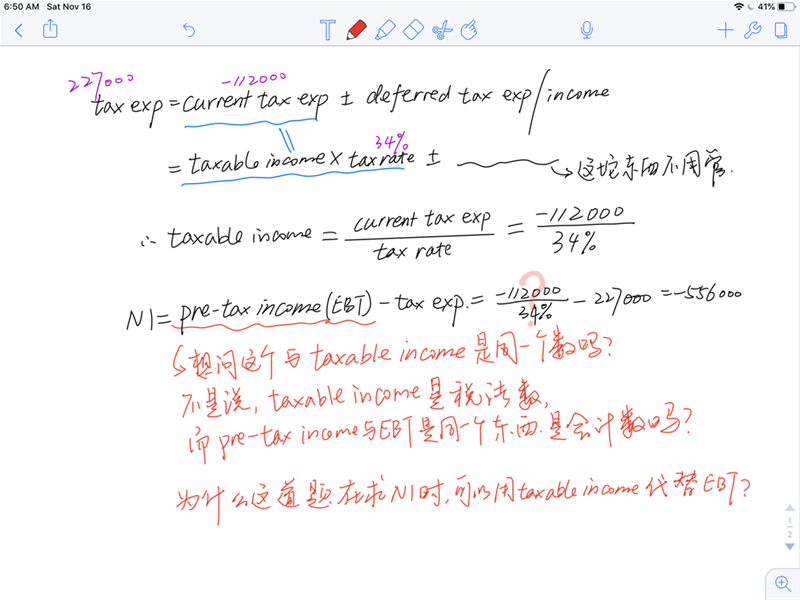 6:50 AM Sat Nov 16 41%
227000 -112000
tax exp = current tax exp ± deferred tax exp/income
34%
= taxable income × tax rate ± 这坨东西不用管.
∴ taxable income = current tax exp / tax rate = -112000 / 34%
NI = pre-tax income (EBT) - tax exp. = -112000 / 34% - 227000 = -556000
?
想问这个与 taxable income 是同一个数吗?
不是说, taxable income 是税法数,
而 pre-tax income 与 EBT 是同一个东西. 是会计数吗?
为什么这道题在求NI时, 可以用 taxable income 代替 EBT?
1
2